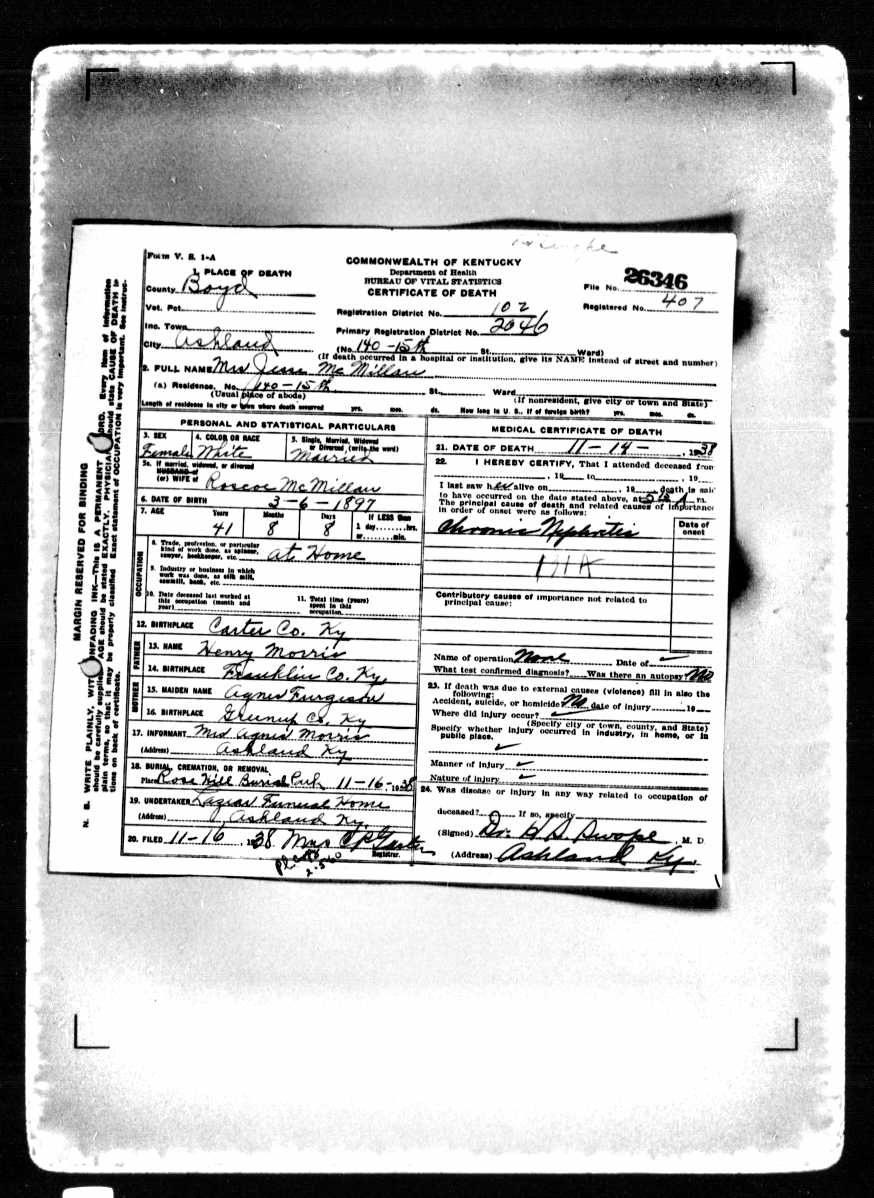 Form V. S. 1-A
COMMONWEALTH OF KENTUCKY
Department of Health
BUREAU OF VITAL STATISTICS
CERTIFICATE OF DEATH
File No. 26346
Registered No. 407
1. PLACE OF DEATH
County Boyd
Vot. Pct.
Inc. Town
City Ashland
Registration District No. 102
Primary Registration District No. 2046
(No. 140-15th St. Ward)
(If death occurred in a hospital or institution, give its NAME instead of street and number)
2. FULL NAME Mrs Jesse McMillan
(a) Residence. No. 140-15th St. Ward
(Usual place of abode) (If nonresident, give city or town and State)
Length of residence in city or town where death occurred yrs. mos. ds. How long in U. S., if of foreign birth? yrs. mos. ds.
PERSONAL AND STATISTICAL PARTICULARS
3. SEX 4. COLOR OR RACE 5. Single, Married, Widowed or Divorced, (write the word)
Female White Married
5a. If married, widowed, or divorced
HUSBAND of
(or) WIFE of Roscoe McMillan
6. DATE OF BIRTH 3-6-1897
7. AGE Years Months Days If LESS than
41 8 8 1 day hrs.
or min.
OCCUPATION
8. Trade, profession, or particular
kind of work done, as spinner,
sawyer, bookkeeper, etc. At Home
9. Industry or business in which
work was done, as silk mill,
sawmill, bank, etc.
10. Date deceased last worked at
this occupation (month and
year)
11. Total time (years)
spent in this
occupation
12. BIRTHPLACE Carter Co. Ky
FATHER
13. NAME Henry Morris
14. BIRTHPLACE Franklin Co. Ky.
MOTHER
15. MAIDEN NAME Agnes Furgison
16. BIRTHPLACE Greenup Co. Ky
17. INFORMANT Mrs Agnes Morris
(Address) Ashland Ky
18. BURIAL, CREMATION, OR REMOVAL
Place Rose Hill Burial Park 11-16-1938
19. UNDERTAKER Lazear Funeral Home
(Address) Ashland Ky.
20. FILED 11-16, 1938 Mrs
Registrar.
MEDICAL CERTIFICATE OF DEATH
21. DATE OF DEATH 11-14-, 1938
22. I HEREBY CERTIFY, That I attended deceased from
, 19 to , 19
I last saw her alive on , 19 death is said
to have occurred on the date stated above, at 5 A m.
The principal cause of death and related causes of importance
in order of onset were as follows:
Date of onset
Chronic Nephritis
131A
Contributory causes of importance not related to
principal cause:
Name of operation None Date of
What test confirmed diagnosis? Was there an autopsy? No
23. If death was due to external causes (violence) fill in also the
following:
Accident, suicide, or homicide? No date of injury 19
Where did injury occur?
(Specify city or town, county, and State)
Specify whether injury occurred in industry, in home, or in
public place.
Manner of injury
Nature of injury
24. Was disease or injury in any way related to occupation of
deceased? If so, specify
(Signed) Dr. H S Swope, M. D
(Address) Ashland Ky.
MARGIN RESERVED FOR BINDING